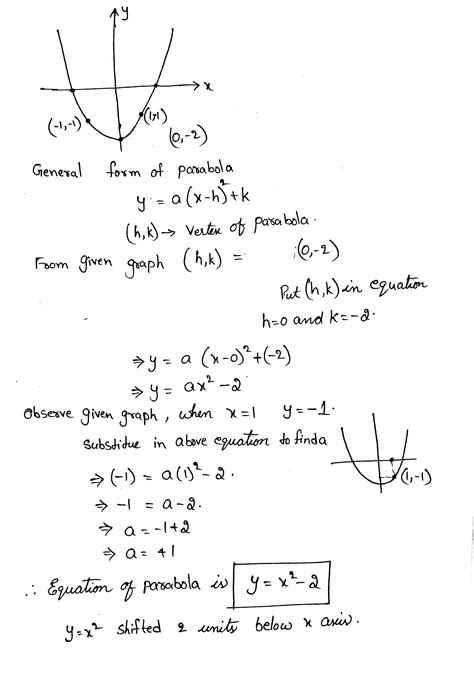 y
x
(-1,-1)
(1,-1)
(0,-2)
General form of parabola
y = a(x-h)²+k
(h,k) → Vertex of parabola.
From given graph (h,k) = (0,-2)
Put (h,k) in equation
h=0 and k=-2.
⇒ y = a (x-0)²+(-2)
⇒ y = ax² - 2
Observe given graph, when x=1 y=-1.
substidue in above equation to find a
(1,-1)
⇒ (-1) = a(1)² - 2.
⇒ -1 = a-2.
⇒ a = -1+2
⇒ a = +1
∴ Equation of parabola is y = x² - 2
y=x² shifted 2 units below x axis.